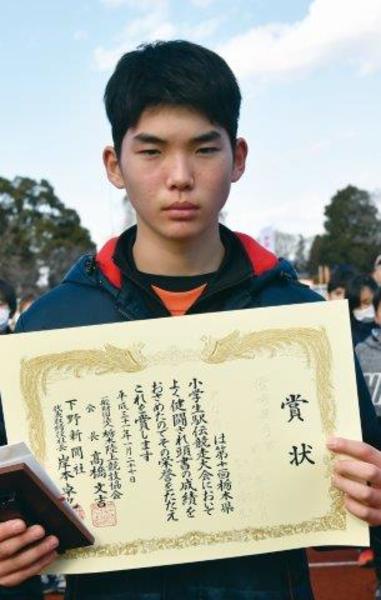 賞状
は第十回栃木県
小学生駅伝競走大会において
よく健闘され頭書の成績を
おさめたのでその栄誉をたたえ
これを賞します
平成三十一年一月二十日
一般財団法人栃木陸上競技協会
会長 高橋文吉
下野新聞社
代表取締役社長 岸本卓也